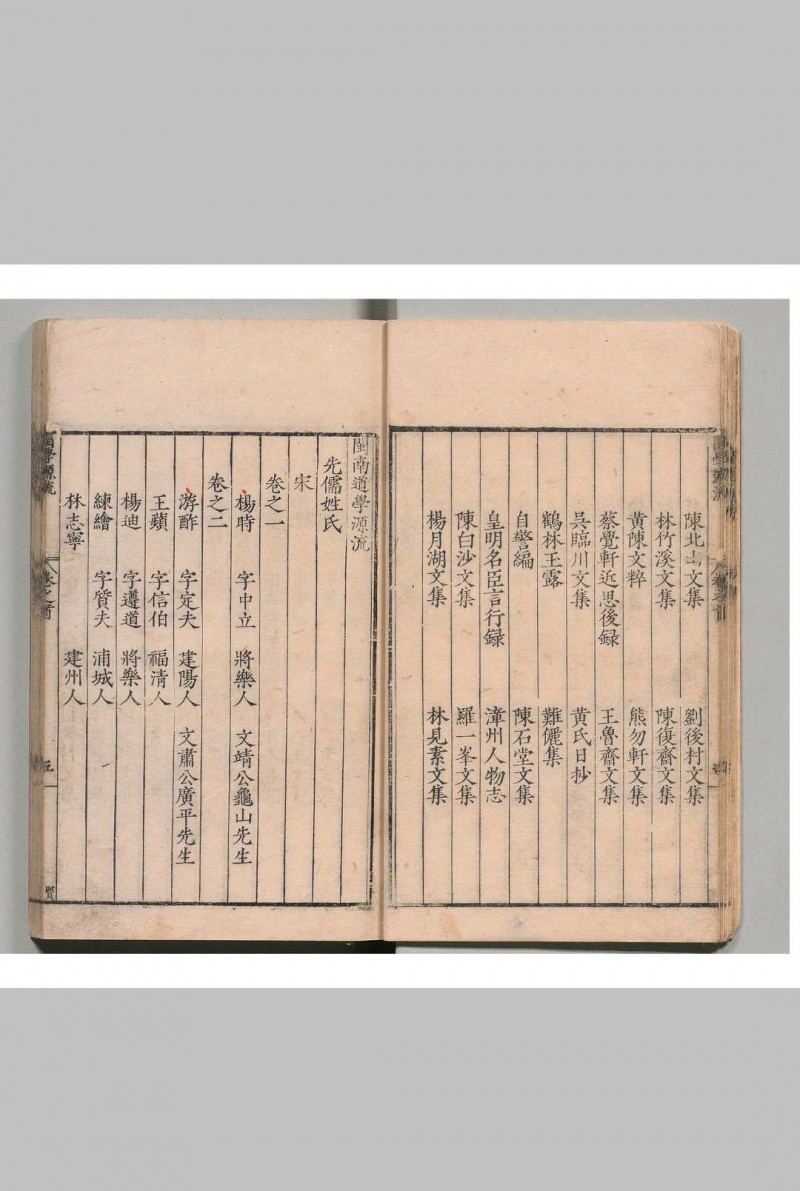 陳北山文集　劉後村文集
林竹溪文集　陳復齋文集
黄陳文粹　熊勿軒文集
蔡覺軒近思後録　王魯齋文集
呉臨川文集　黄氏日抄
鶴林玉露　難儷集
自警編　陳石堂文集
皇明名臣言行録　漳州人物志
陳白沙文集　羅一峯文集
楊月湖文集　林見素文集
閩南道學源流
先儒姓氏
宋
卷之一
楊時　字中立　將樂人　文靖公龜山先生
卷之二
游酢　字定夫　建陽人　文肅公廣平先生
王蘋　字信伯　福清人
楊迪　字遵道　將樂人
練繪　字質夫　浦城人
林志寧　建州人
學源流　卷之首　五　賢